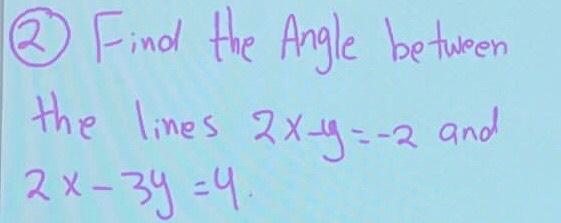 ② Find the Angle between
the lines 2x-y=-2 and
2x-3y=4.